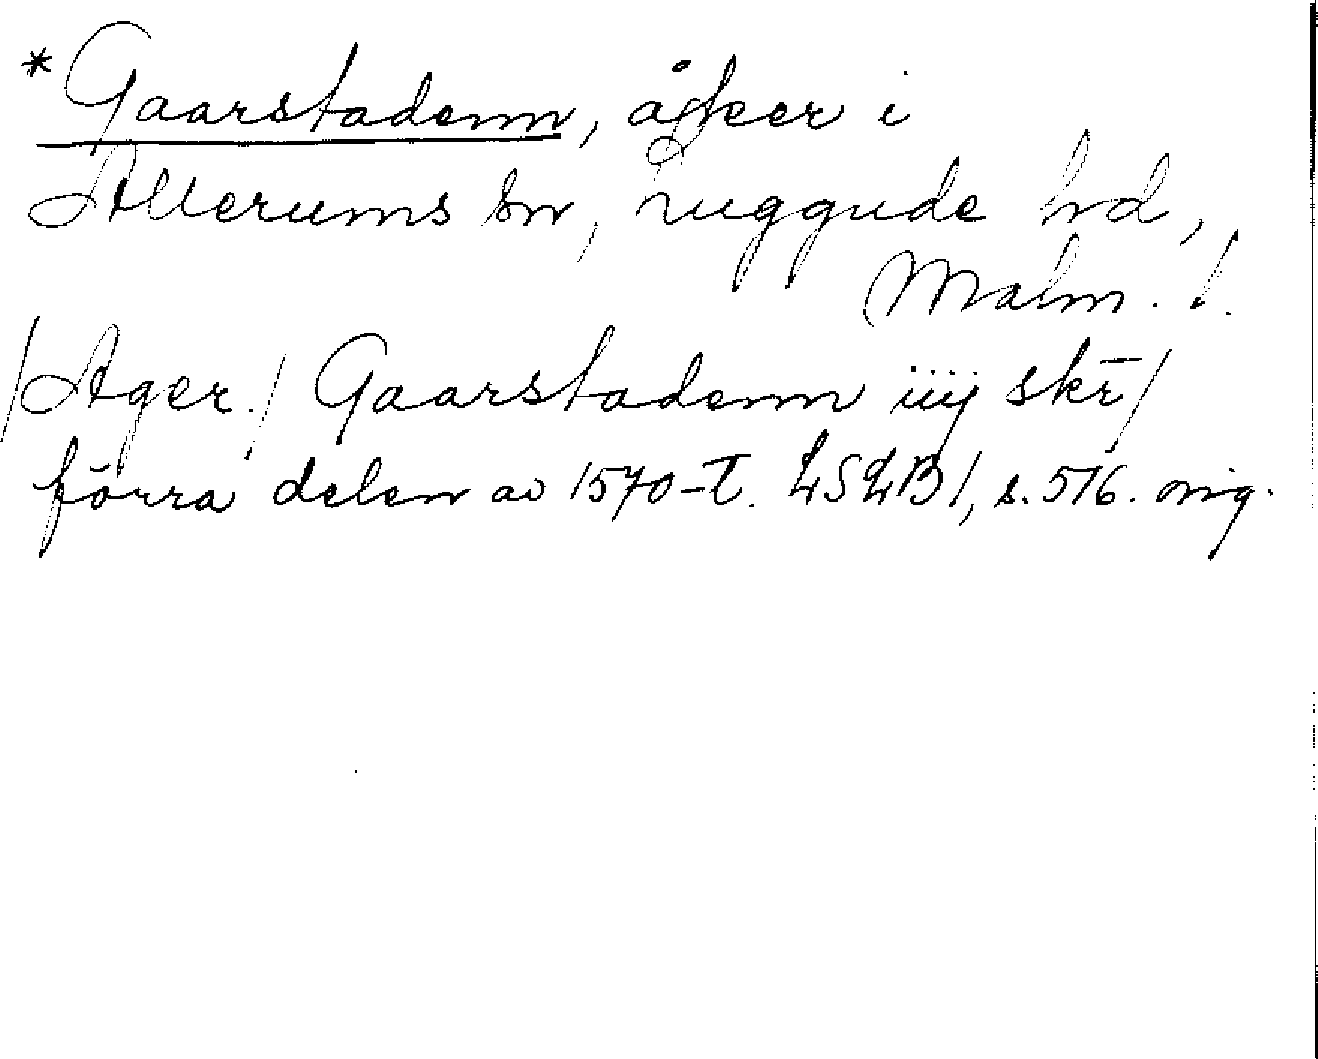 *Gaarstadenn, åker i
Allerums sn, Luggude hd,
Malm. l.
/Ager./ Gaarstadenn iiij skr̄/
förra delen av 1570-t. LSLB 1, s. 576. orig.